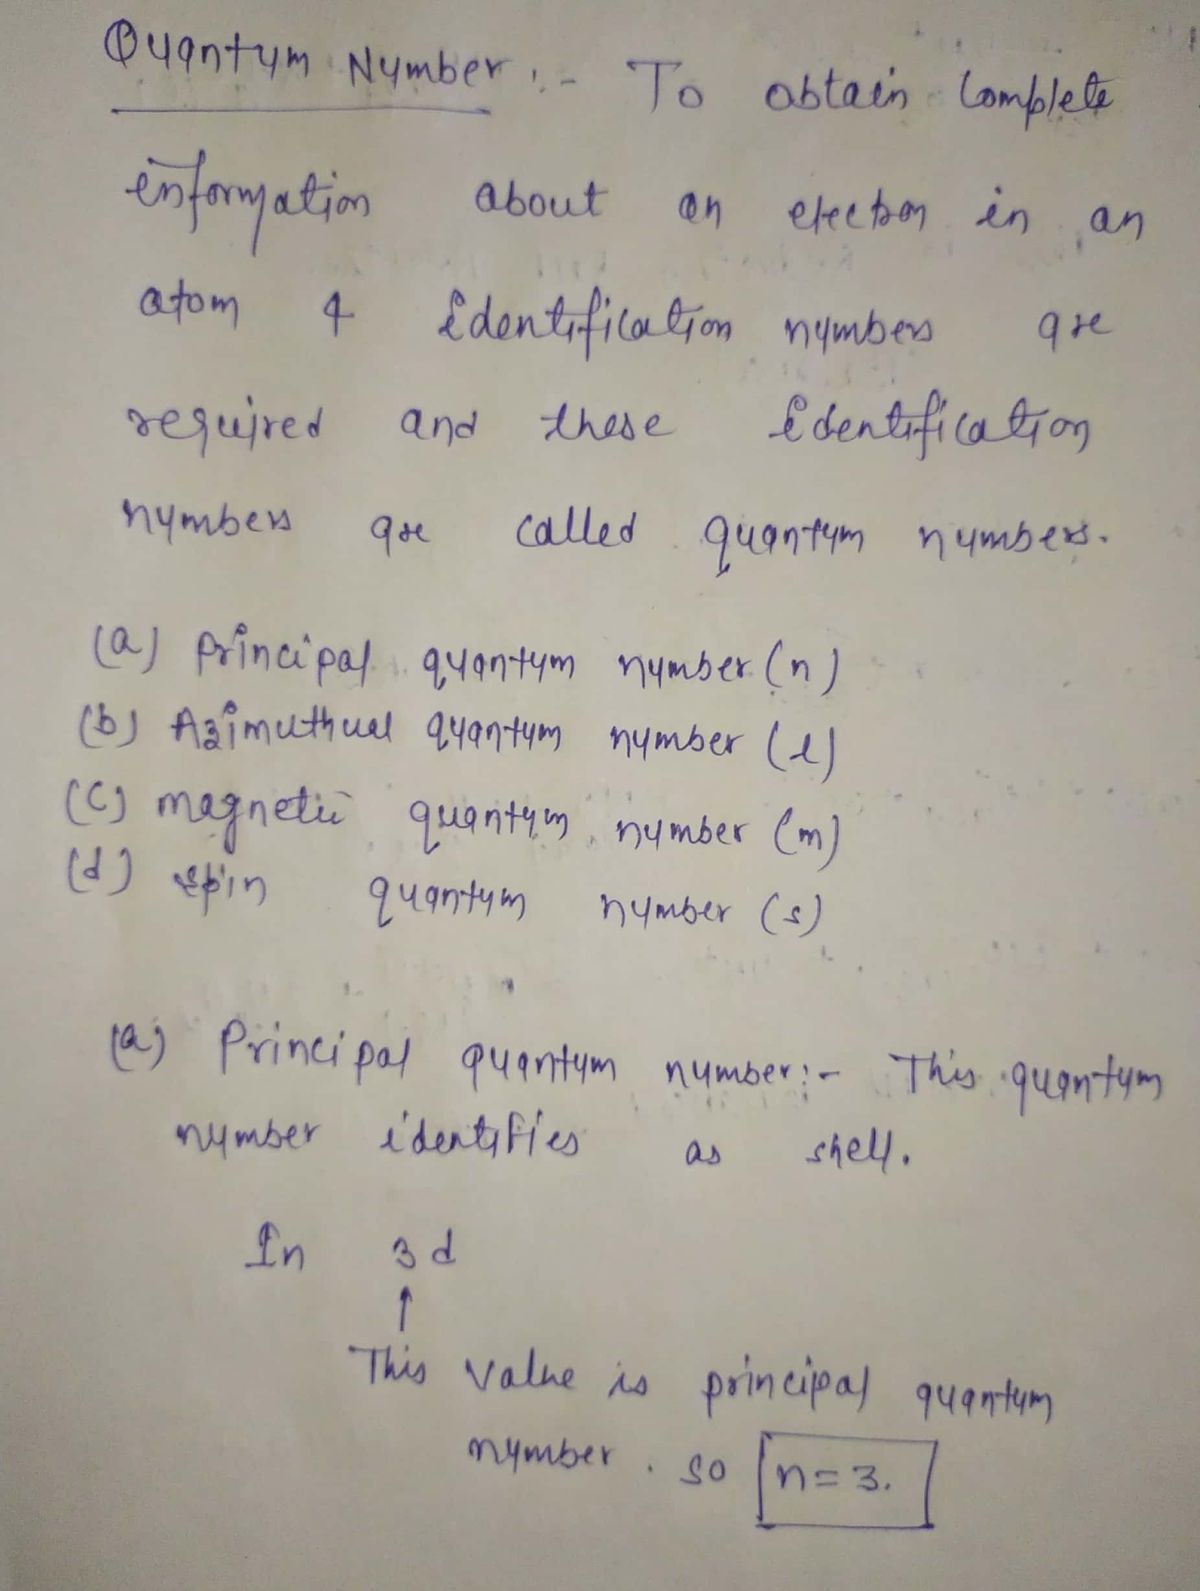 Quantum Number :- To obtain Complete
information about an electron in an
atom 4 identification numbers are
required and these identification
numbers are called quantum numbers.
(a) Principal quantum number (n)
(b) Azimuthual quantum number (l)
(C) magnetic quantum number (m)
(d) spin quantum number (s)
(a) Principal quantum number:- This quantum
number identifies as shell.
In 3d
↑
This value is principal quantum
number. so n=3.